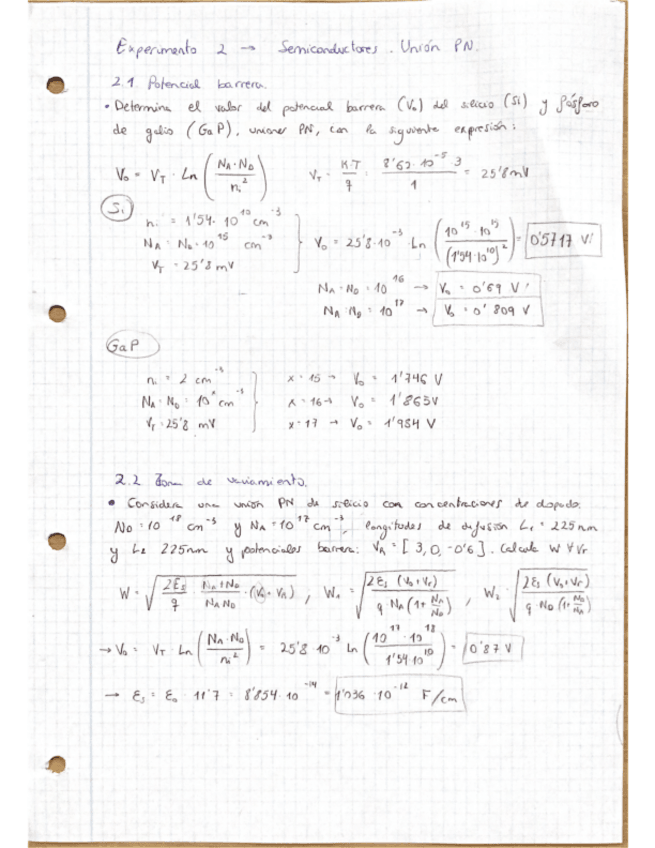 Experimento 2 → Semiconductores. Unión PN.
2.1 Potencial barrera.
• Determina el valor del potencial barrera (V₀) del silicio (Si) y fósforo
de galio (GaP), uniones PN, con la siguiente expresión:
V₀ = V_T · Ln (N_A·N_D / n_i²)    V_T = K·T / q = 8'62·10⁻⁵·3 / 1 = 25'8 mV
Si
n_i = 1'54·10¹⁰ cm⁻³
N_A = N_D = 10¹⁵ cm⁻³    V₀ = 25'8·10⁻³ · Ln (10¹⁵·10¹⁵ / (1'54·10¹⁰)²) = 0'5717 V
V_T = 25'8 mV
N_A = N_D = 10¹⁶ → V₀ = 0'69 V
N_A = N_D = 10¹⁷ → V₀ = 0'809 V
GaP
n_i = 2 cm⁻³    x = 15 → V₀ = 1'746 V
N_A = N_D = 10ˣ cm⁻³    x = 16 → V₀ = 1'865 V
V_T = 25'8 mV    x = 17 → V₀ = 1'984 V
2.2 Zona de vaciamiento.
• Considera una unión PN de silicio con concentraciones de dopado:
N_D = 10¹⁸ cm⁻³ y N_A = 10¹⁷ cm⁻³, longitudes de difusión L₁ = 225 nm
y L₂ 225 nm y potenciales barrera: V_A = [3, 0, -0'6]. Calcula W ∀ Vr
W = √(2ε_s / q · N_A + N_D / N_A N_D · (V₀ + V_A)), W₁ = √(2ε_s (V₀+Vr) / q·N_A (1 + N_A/N_D)), W₂ = √(2ε_s (V₀+Vr) / q·N_D (1 + N_D/N_A))
→ V₀ = V_T · Ln (N_A·N_D / n_i²) = 25'8·10⁻³ ln (10¹⁷·10¹⁸ / 1'54·10¹⁰) = 0'87 V
→ ε_s = ε₀ · 11'7 = 8'854·10⁻¹⁴ = 1'036·10⁻¹² F/cm